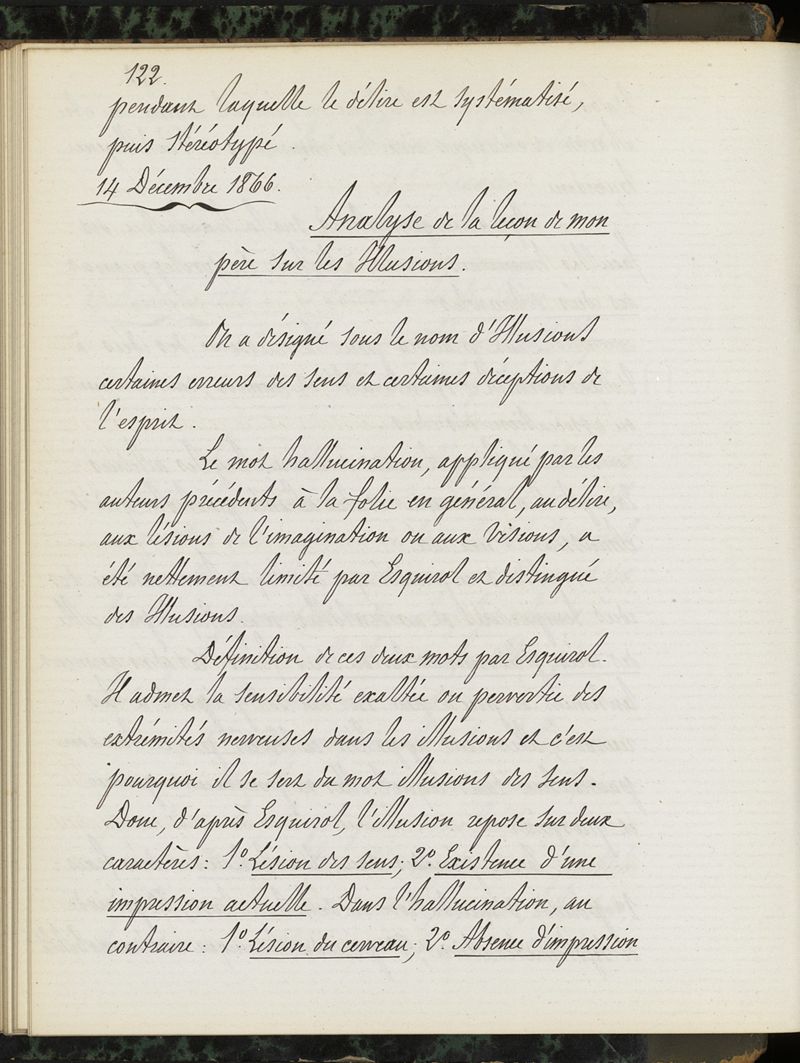 122.
pendant laquelle le délire est systématisé,
puis stéréotypé.
14 Décembre 1866.
Analyse de la leçon de mon
père sur les Illusions.
On a désigné sous le nom d'Illusions
certaines erreurs des sens et certaines déceptions de
l'esprit.
Le mot hallucination, appliqué par les
auteurs précédents à la folie en général, au délire,
aux lésions de l'imagination ou aux visions, a
été nettement limité par Esquirol et distingué
des Illusions.
Définition de ces deux mots par Esquirol.
Il admet la sensibilité exaltée ou pervertie des
extrémités nerveuses dans les illusions et c'est
pourquoi il se sert du mot illusions des sens.
Donc, d'après Esquirol, l'illusion repose sur deux
caractères: 1º Lésion des sens; 2º Existence d'une
impression actuelle. Dans l'hallucination, au
contraire: 1º Lésion du cerveau; 2º Absence d'impression